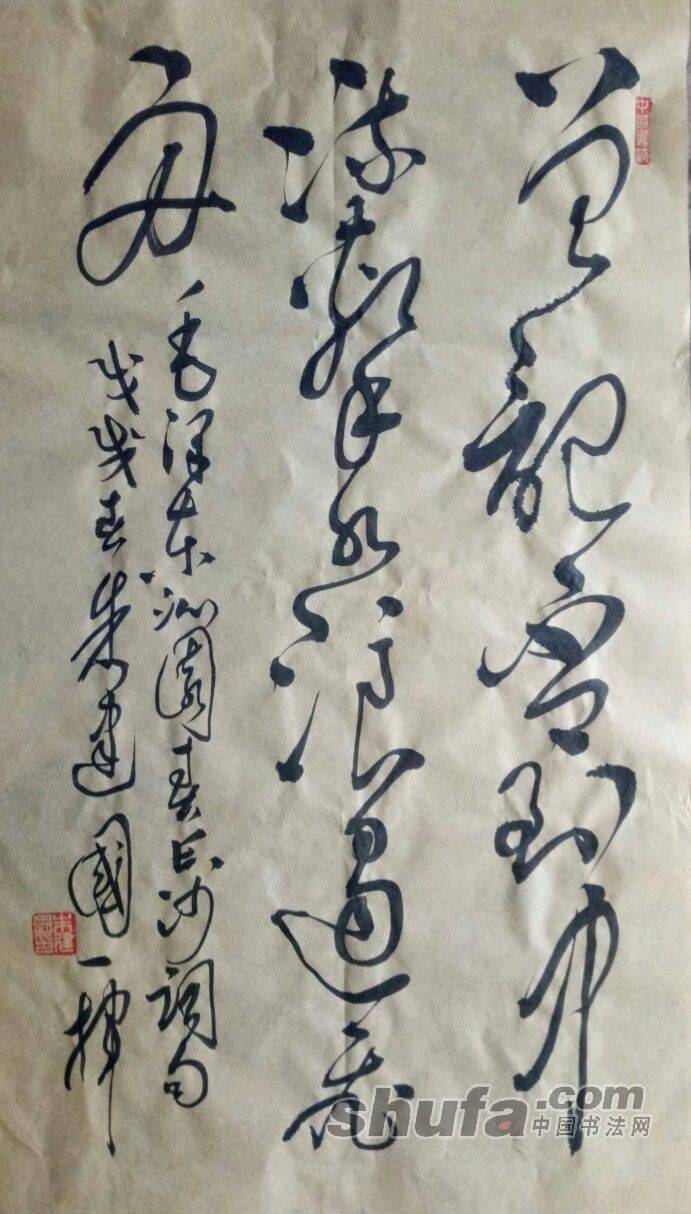 曾記否到中
流擊水浪遏飛
舟
毛澤東沁園春長沙詞句
戊戌春朱建國一揮
shufa.com
中国书法网